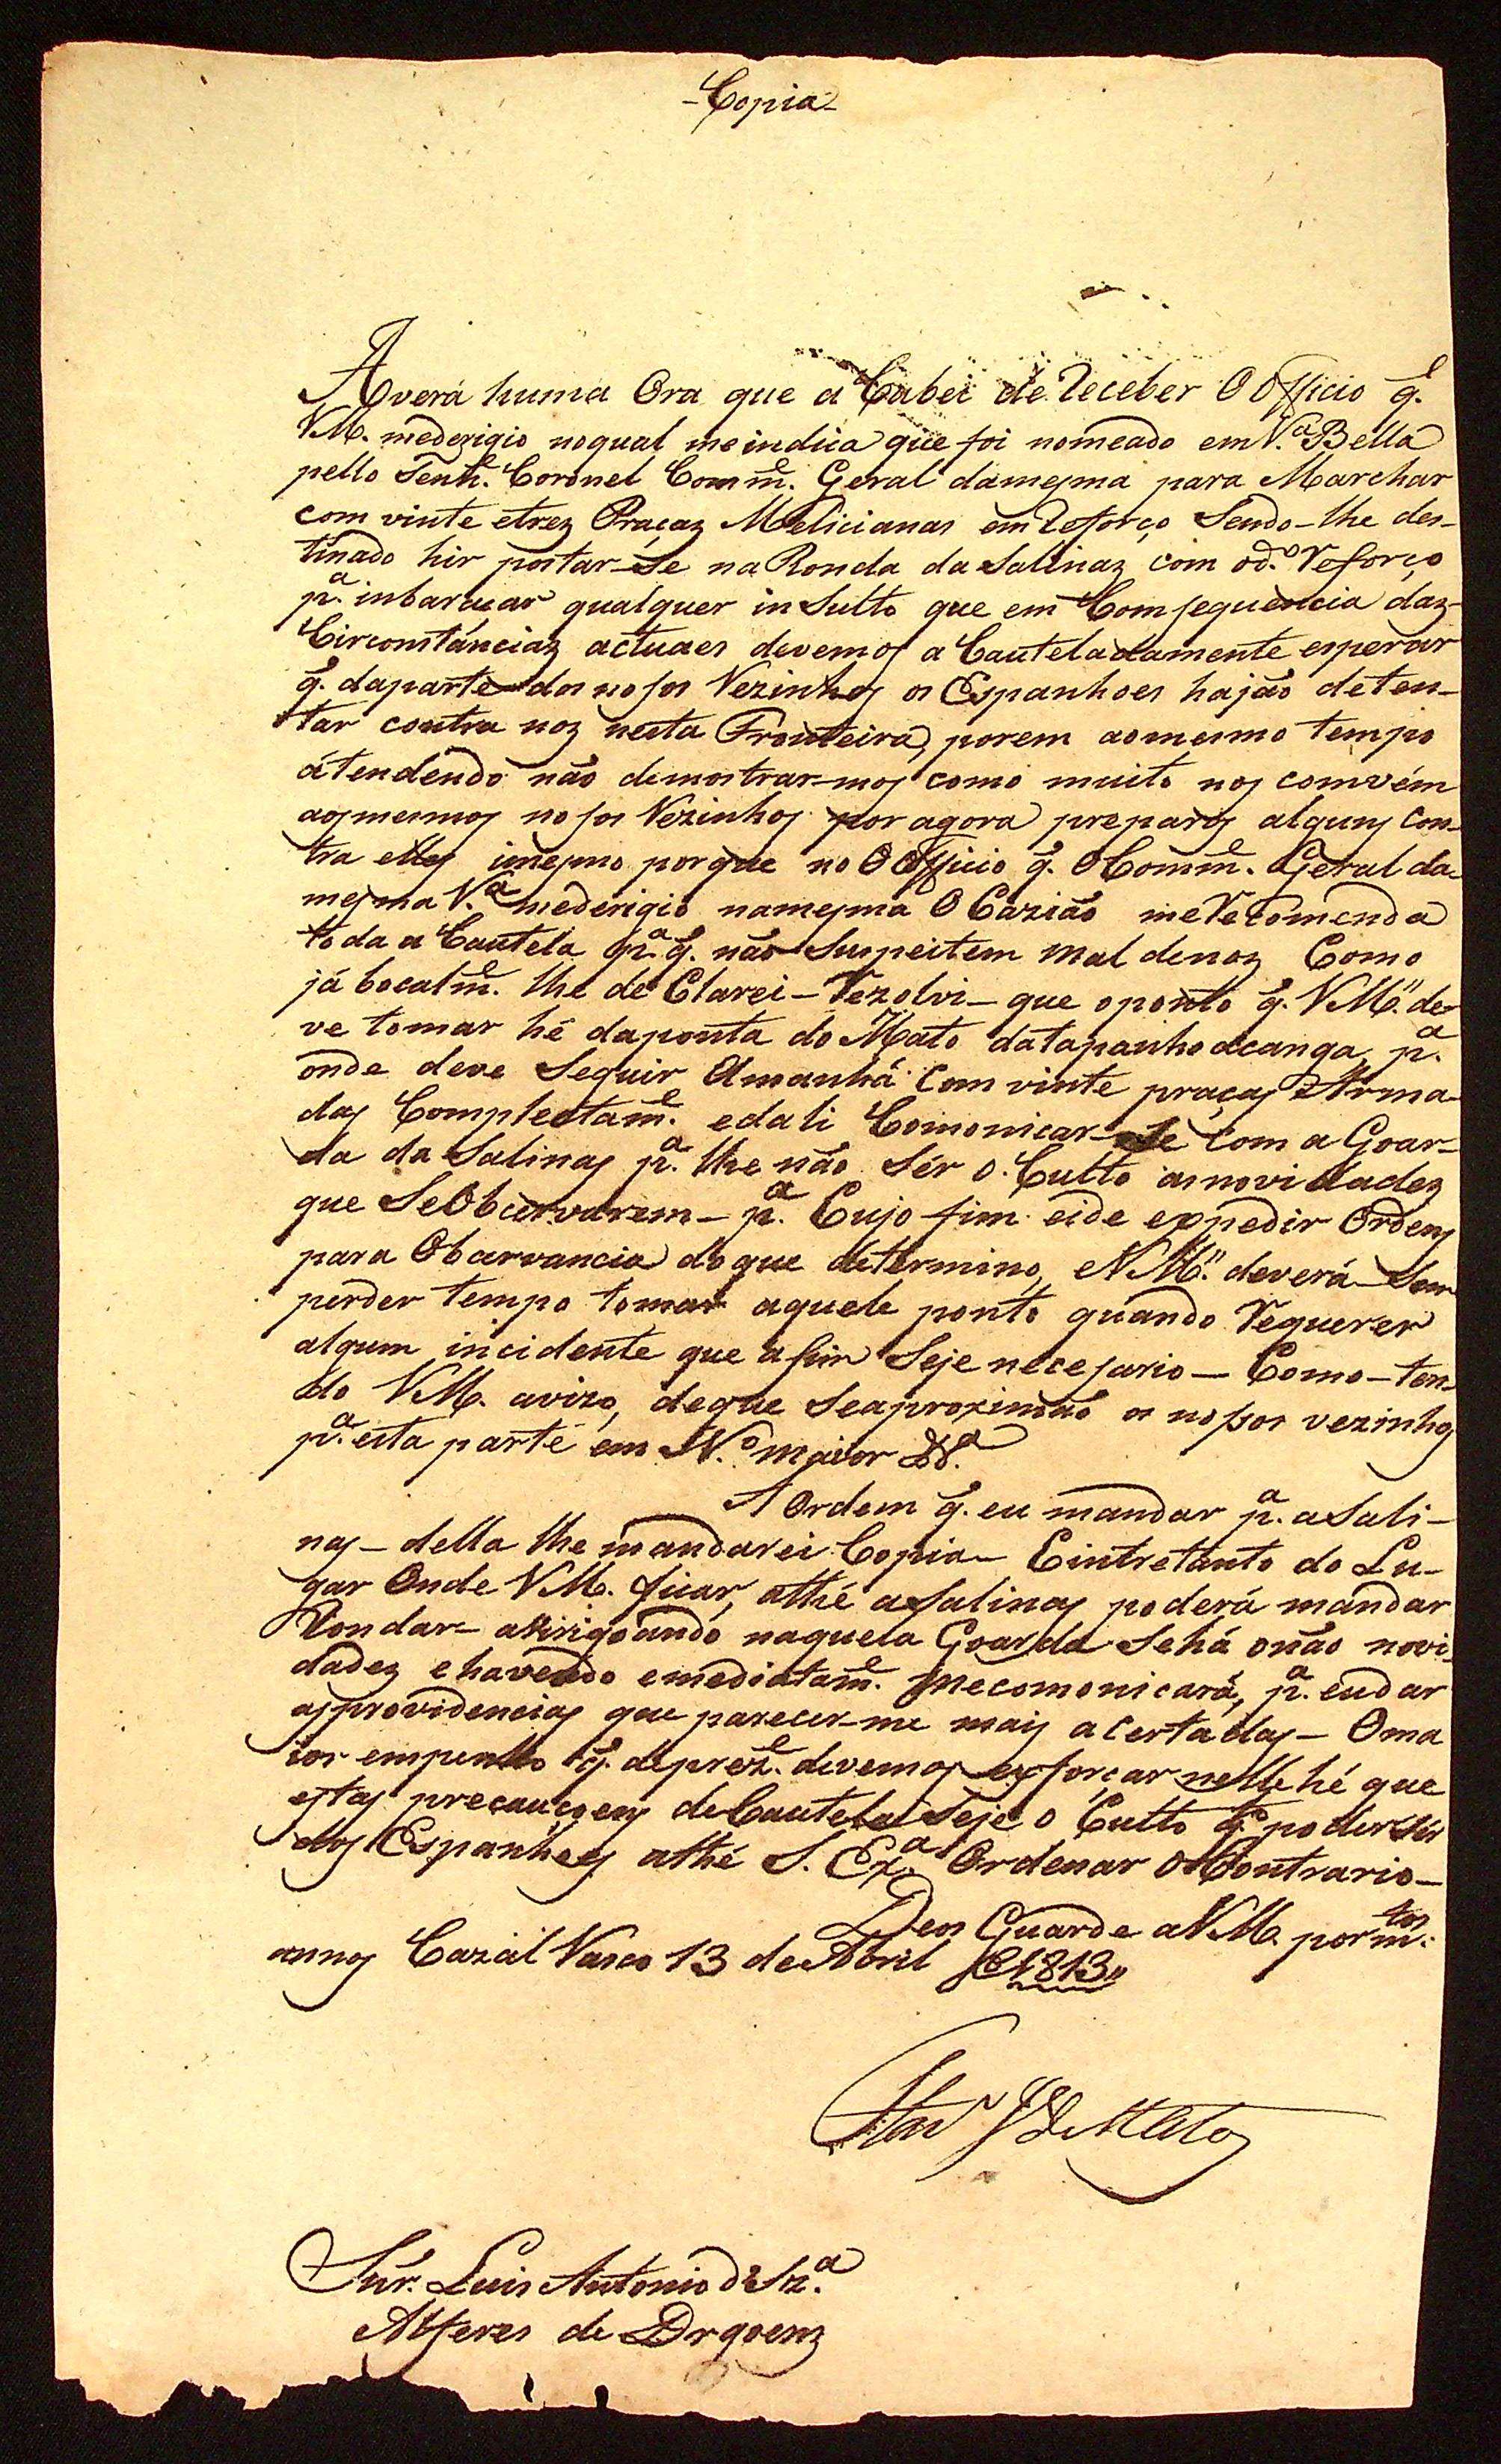 -Copia-
Averá huma Ora que a Cabei de Receber O Officio q.e
VM. mederigio noqual meindica que foi nomeado em V.a Bella
pello Tenh.e Coronel Comm.e Geral damesma para Marchar
com vinte etrez Praçaz Melicianas em Reforço Sendo-lhe des-
tinado hir postar-Se na Ronda da Salinaz com od.o Reforço
p.a inbaraçar qualquer in Sulto que em Comsequencia daz
Circomstânciaz actuaes devemos a Cauteladamente esperar
q.e daparte dos nosos Vezinhos os Espanhoes hajão deten-
tar contra noz nesta Fronteira, porem aomesmo tempo
átendendo não demostrar-mos como muito nos comvém
aosmesmos nosos Vezinhos por agora preparos alguns Con-
tra elles imesmo porque no O Officio q.e OComm.e Geral da-
mesma V.a mederigio namesma OCazião meRecomenda
toda a Cautela p.a q.e não Suspeitem mal denoz Como
já bocalm.e lhe de Clarei - Rezolvi - que oponto q.e VM.ce de-
ve tomar hé daponta do Mato datapanhoacanga, p.a
onde deve Seguir Amanhá Com vinte praças Arma-
das Complectam.e edali Comonicar-Se Com a Goar-
da da Salinas p.a lhe não Sér o.Culto asnovidadez
que SeObcervarem - p.a Cujo fim eide expedir Ordens
para Obcervancia doque determino, eVM.ce deverá Sem
perder tempo tomar aquele ponto quando Requerer
algum incidente que asim Seje necesario - Como - ten-
do VM. avizo, deque Seaproximão os nossos vezinhos
p.a esta parte em N.o maior &.a
A Ordem q.e eu mandar p.a aSali-
nas - della lhe mandarei Copia - Eintretanto do Lu-
gar Onde VM. ficar, athé aSalinas poderá mandar
Rondar - avirigoando naquela Goarda Sehá onão novi-
dadez ehavendo emediatam.e mecomonicará, p.a eudar
asprovidencias que parecer-me mais acertadas - Oma
ior empenho q.e deprez.e devemos exforçar nelle hé que
estas precauçoens deCautela Seje o Culto q.e poder sér
dos Espanhoes athé S. Ex.a Ordenar oContrario -
Deos Guarde aVM. porm.tos
annos Cazal Vasco 13 de Abril de1813,,
de Mato
Snr. Luis Antonio d Sz.a
Alferes de Drgoens